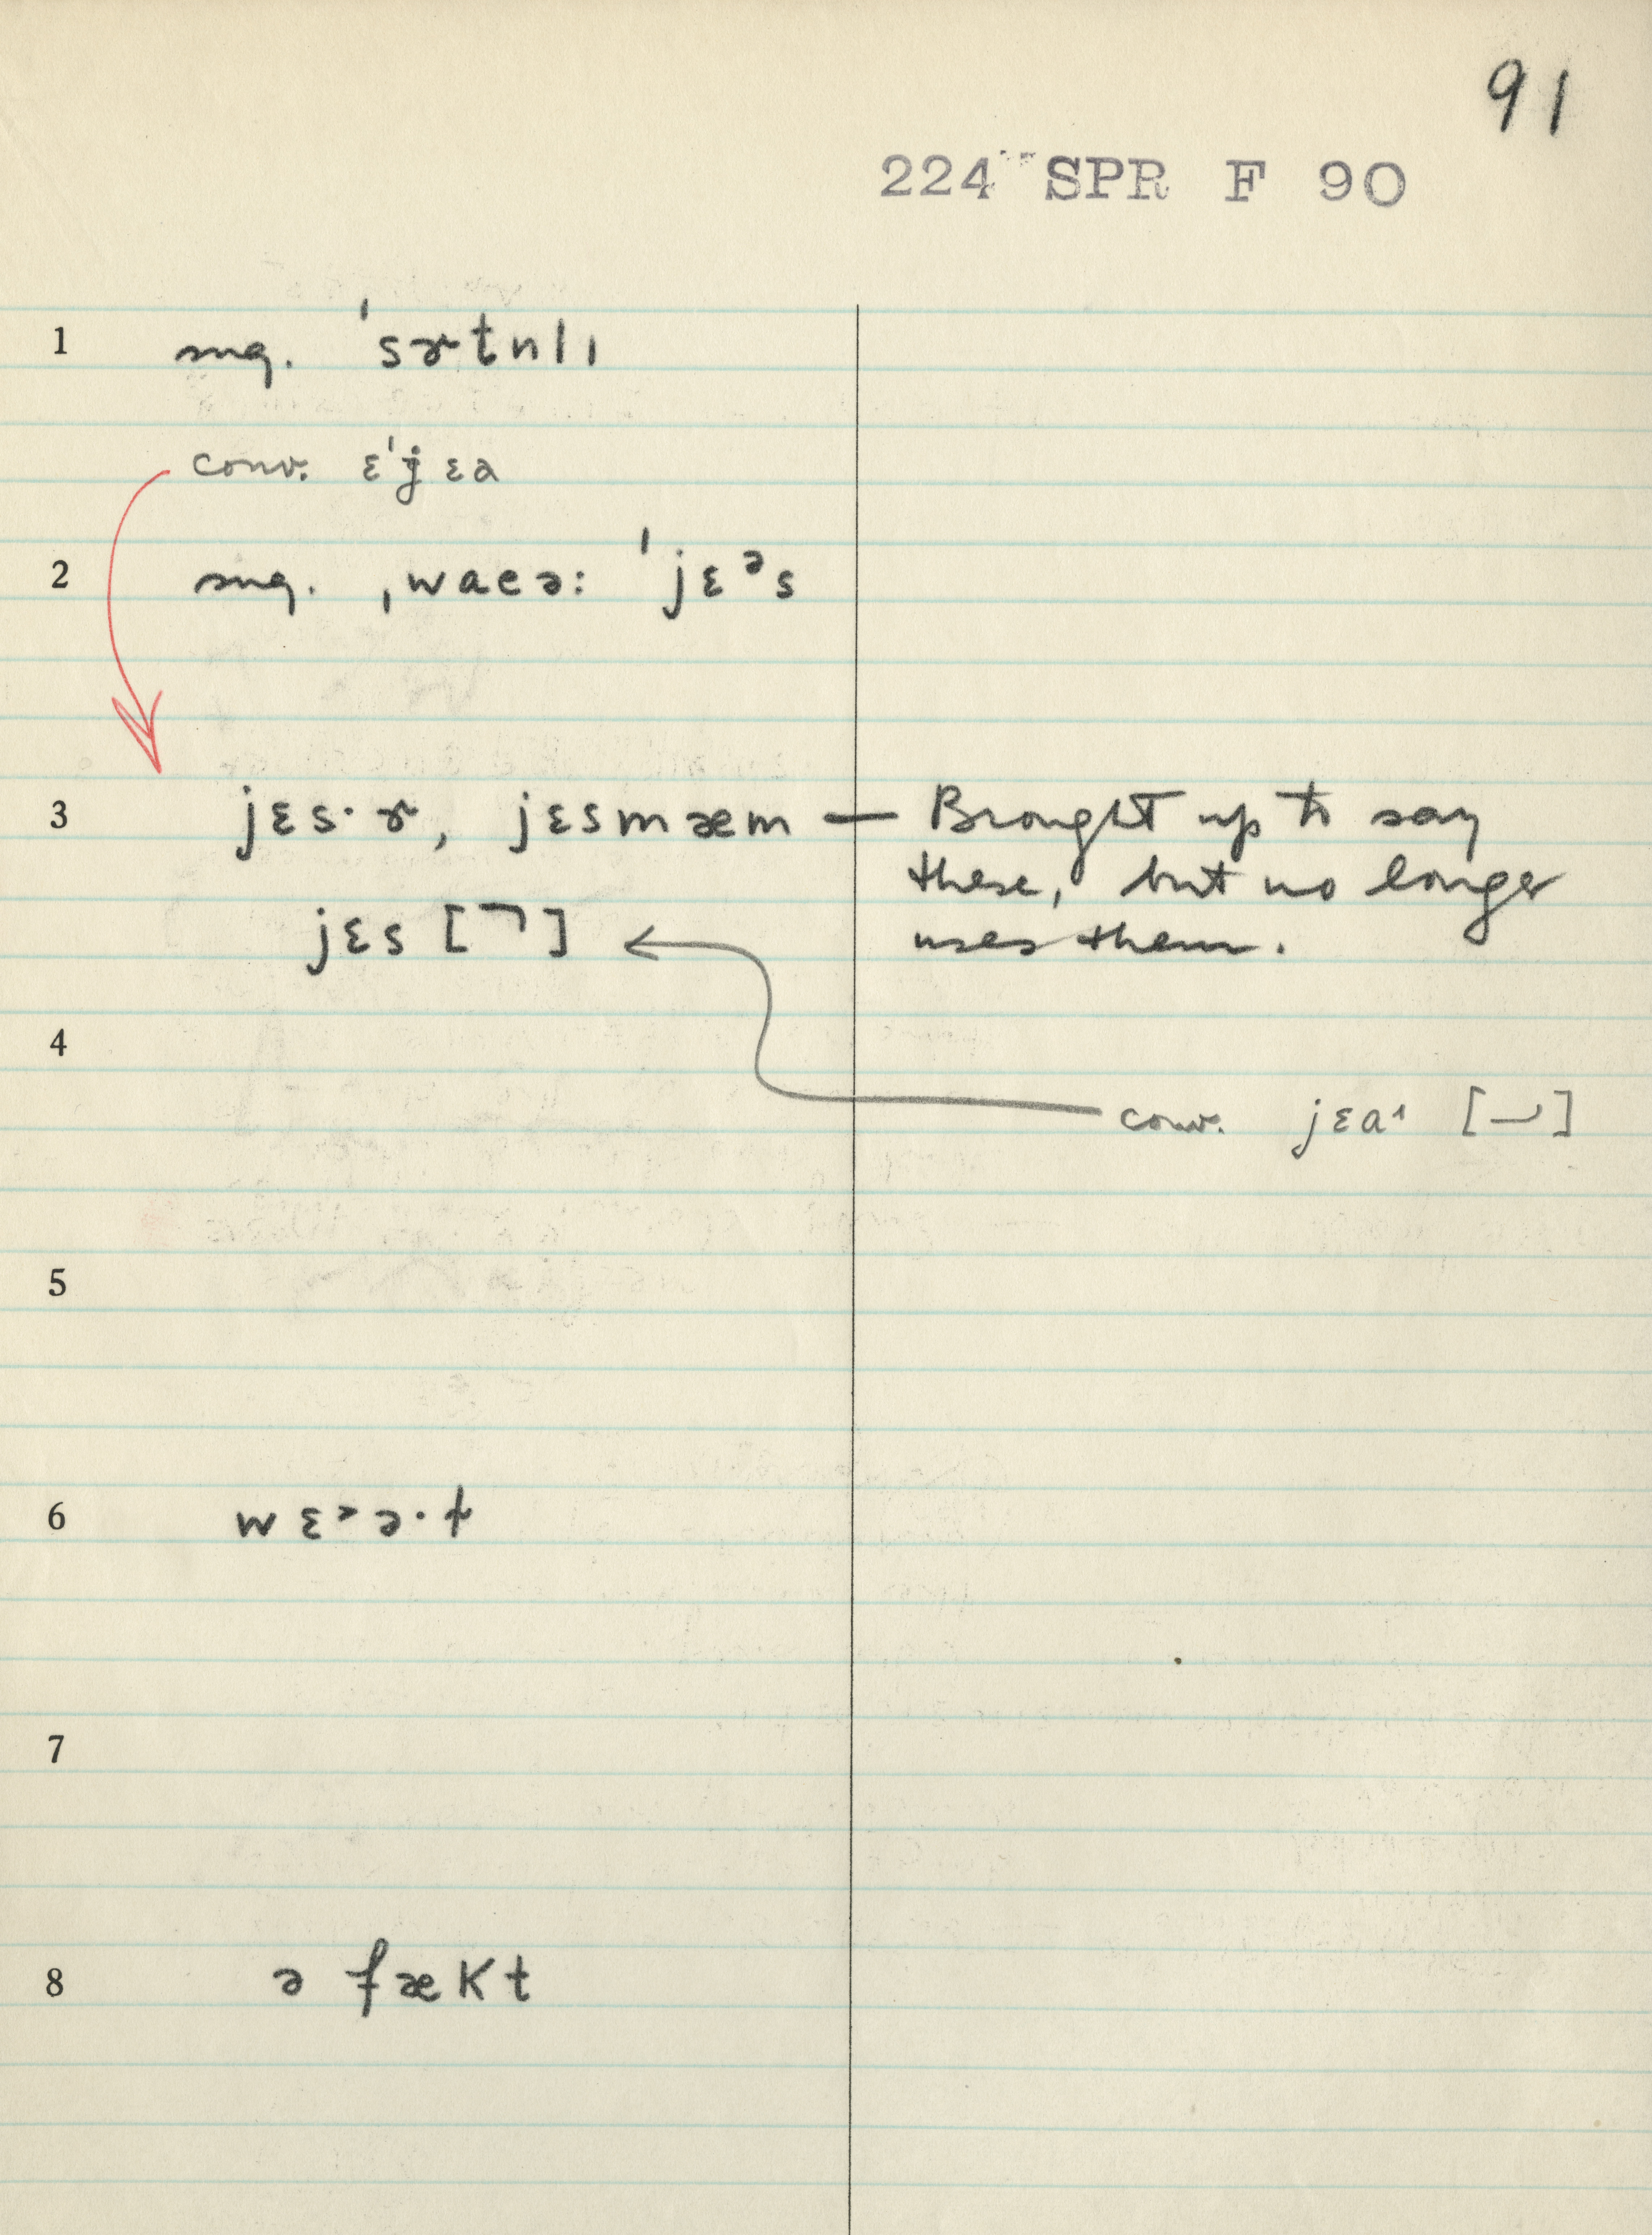 91
224 SPR F 90
1 sug. ˈsɚtnlɪ
conv. ɛˈɉɛə
2 sug. ˌwaeə: ˈjɛᵊs
3 jɛs·ɚ, jɛsmæm — Brought up to say
these, but no longer
jɛs [¬] uses them.
4
conv. jɛa˄ [–⌣]
5
6 wɛ˃ə·ɫ
7
8 ə fækt